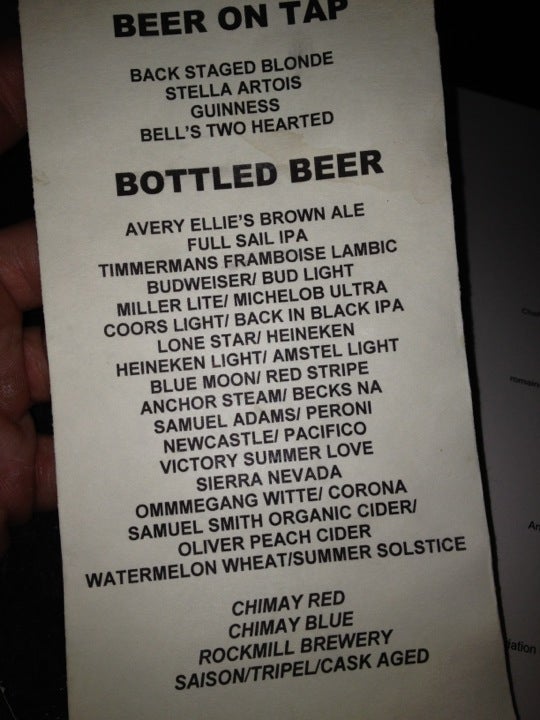 BEER ON TAP
BACK STAGED BLONDE
STELLA ARTOIS
GUINNESS
BELL'S TWO HEARTED
BOTTLED BEER
AVERY ELLIE'S BROWN ALE
FULL SAIL IPA
TIMMERMANS FRAMBOISE LAMBIC
BUDWEISER/ BUD LIGHT
MILLER LITE/ MICHELOB ULTRA
COORS LIGHT/ BACK IN BLACK IPA
LONE STAR/ HEINEKEN
HEINEKEN LIGHT/ AMSTEL LIGHT
BLUE MOON/ RED STRIPE
ANCHOR STEAM/ BECKS NA
SAMUEL ADAMS/ PERONI
NEWCASTLE/ PACIFICO
VICTORY SUMMER LOVE
SIERRA NEVADA
OMMMEGANG WITTE/ CORONA
SAMUEL SMITH ORGANIC CIDER/
OLIVER PEACH CIDER
WATERMELON WHEAT/SUMMER SOLSTICE
CHIMAY RED
CHIMAY BLUE
ROCKMILL BREWERY
SAISON/TRIPEL/CASK AGED